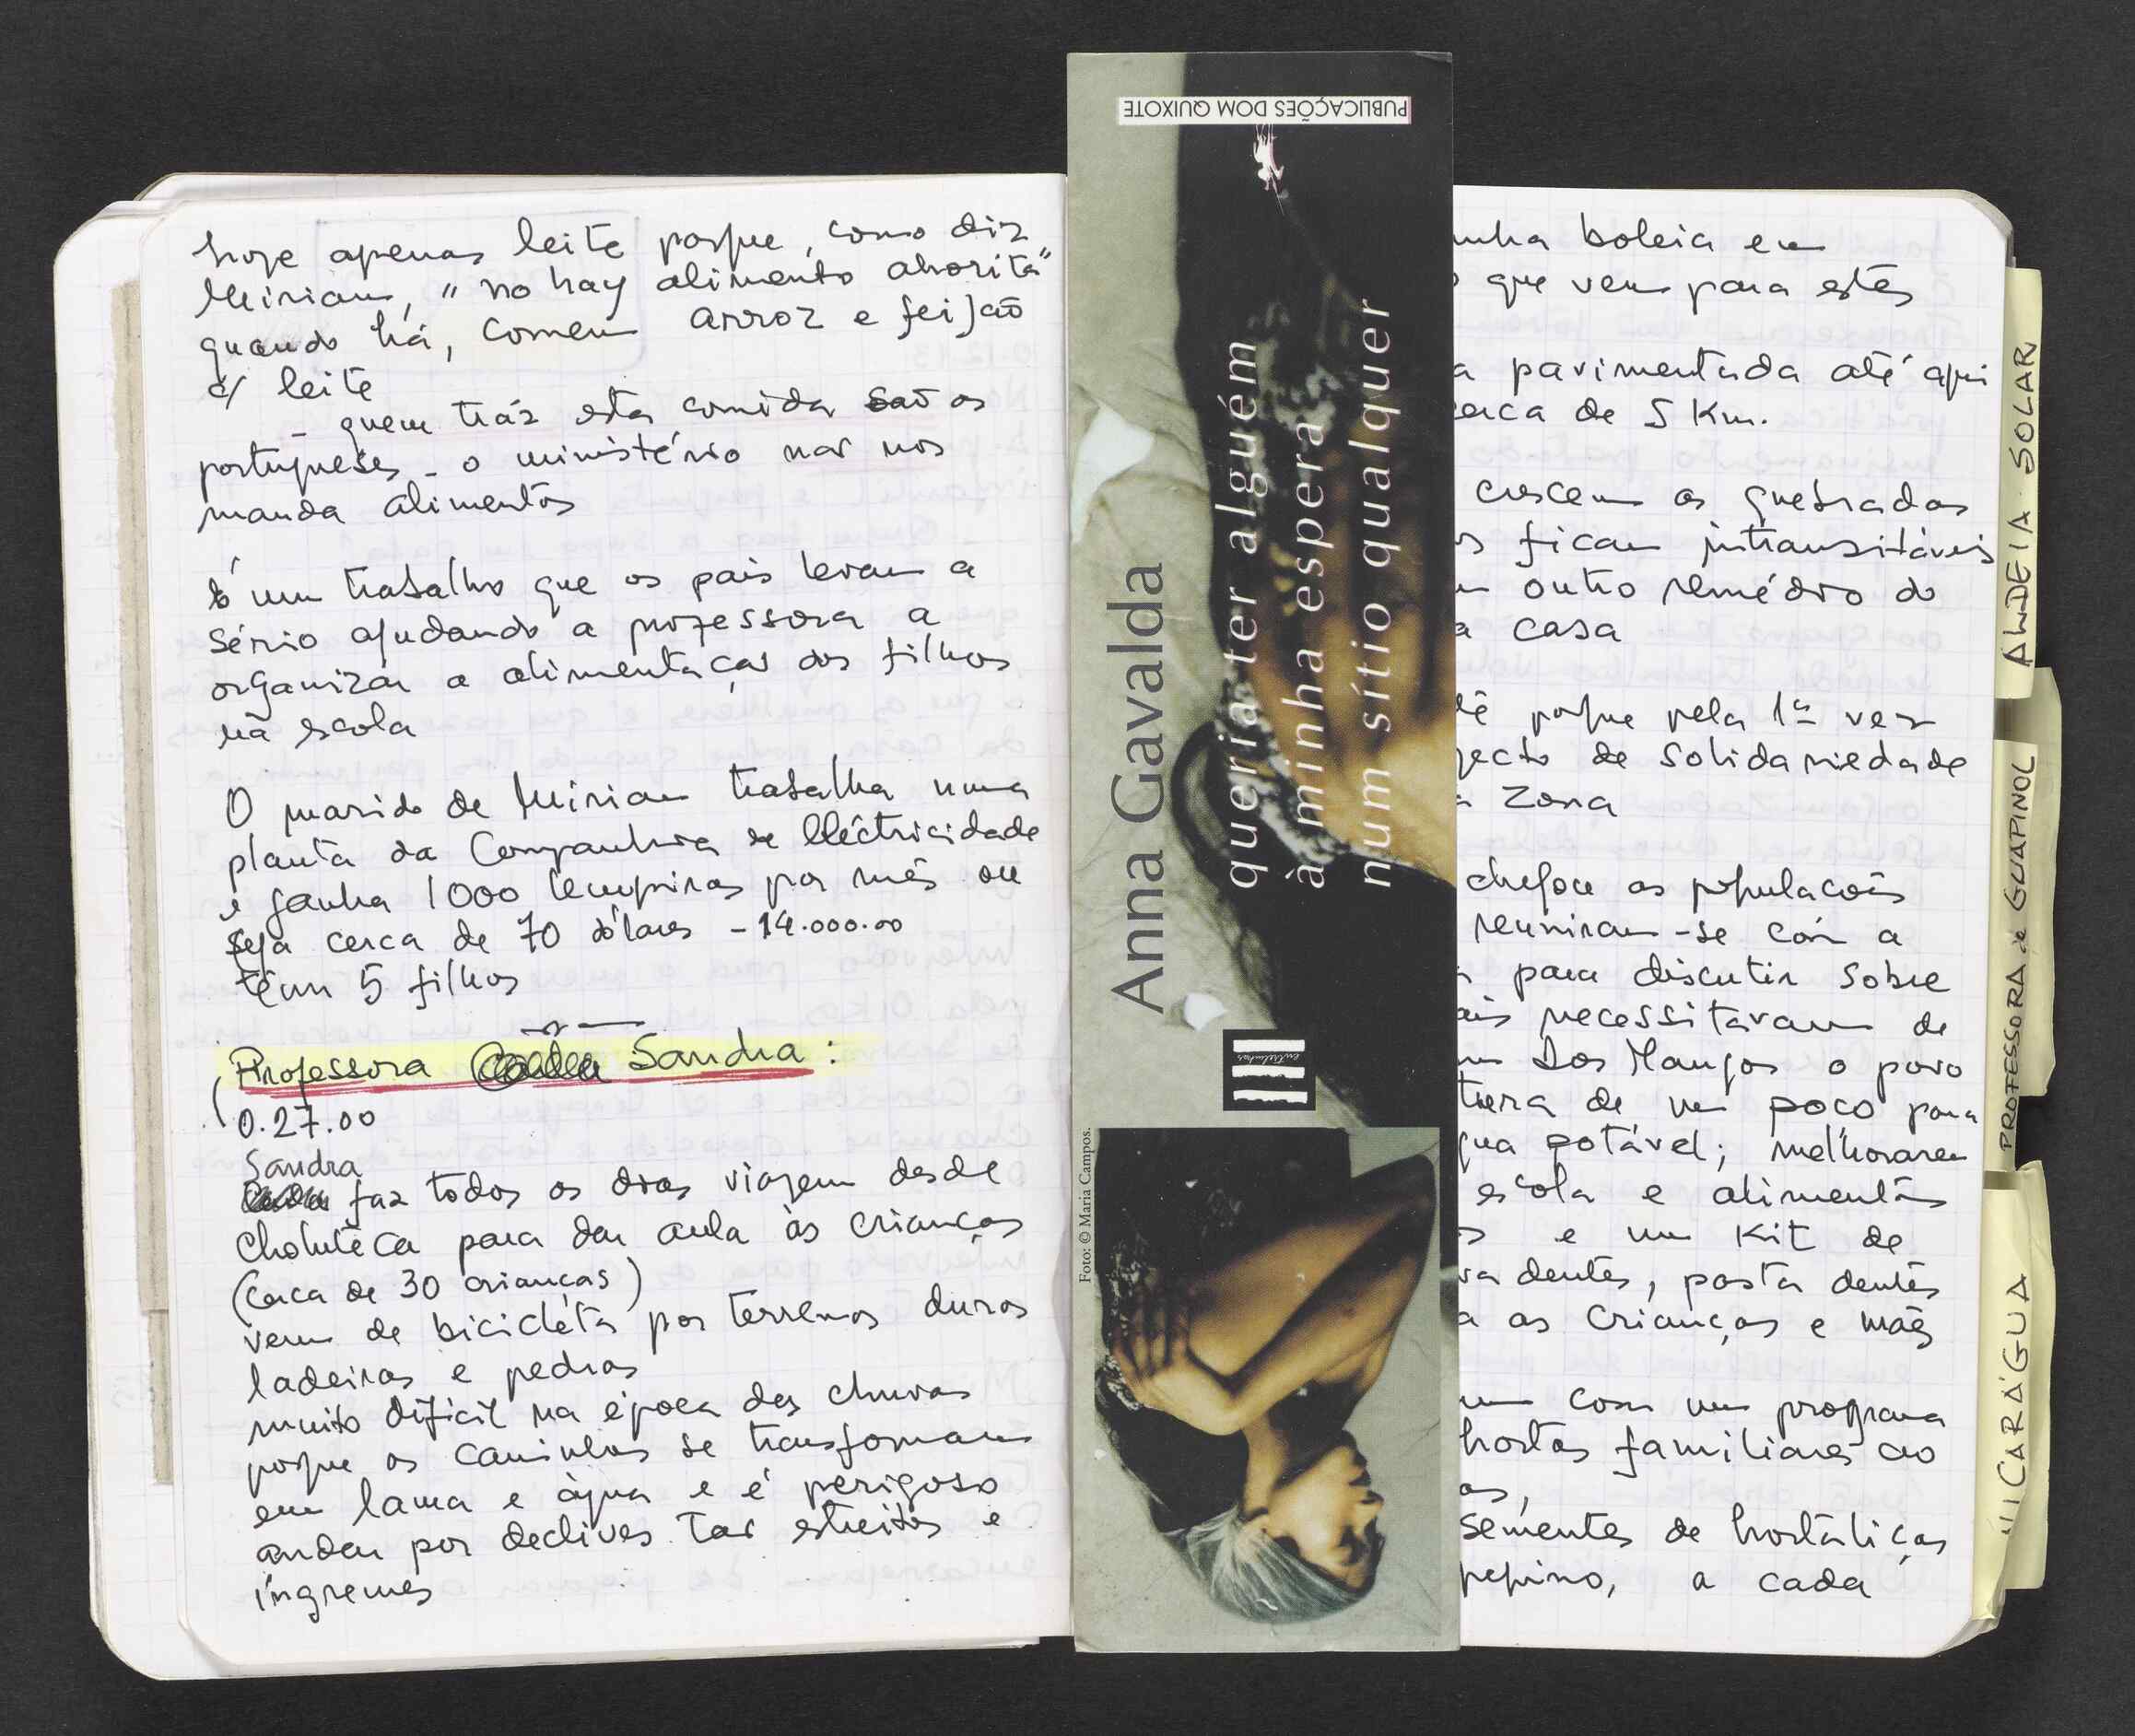 hoje apenas leite porque, como diz
Miriam, "no hay alimento ahorita"
quando há, comem arroz e feijão
c/ leite
- quem tráz esta comida são os
portugueses - o ministério não nos
manda alimentos
É um trabalho que os pais levam a
sério ajudando a professora a
organizar a alimentação dos filhos
na escola
O marido de Miriam trabalha numa
planta da Companhia de Eléctricidade
e ganha 1000 lempiras por mês ou
seja cerca de 70 dólares - 14.000.00
têm 5 filhos
Professora Sandra:
0.27.00
Sandra
faz todos os dias viagem desde
Choluteca para dar aula às crianças
(cerca de 30 crianças)
vem de bicicleta por terrenos duros
ladeiras e pedras
muito dificil na época das chuvas
porque os caminhos se transformam
em lama e àgua e é perigoso
andar por declives tão estreitos e
ingremes
PUBLICAÇÕES DOM QUIXOTE
Anna Gavalda
queria ter alguém
à minha espera
num sítio qualquer
entrelinhas
Foto: © Maria Campos.
nha boleia em
que vem para estes
a pavimentada até aqui
erca de 5 Km.
crescem as quebradas
os ficam intransitáveis
outro remédio do
a casa
té porque pela 1ª vez
jecto de solidariedade
a zona
chefou as populacões
reuniram-se com a
para discutir sobre
ais necessitavam de
Los Mangos o povo
tivera de um poco para
gua potável; melhoraram
escola e alimentos
e um Kit de
va dentes, pasta dentes
a as crianças e mães
com um programa
hortas familiares ao
as,
sementes de hortaliças
pepino, a cada
ALDEIA SOLAR
PROFESSORA de GUAPINOL
NICARÁGUA